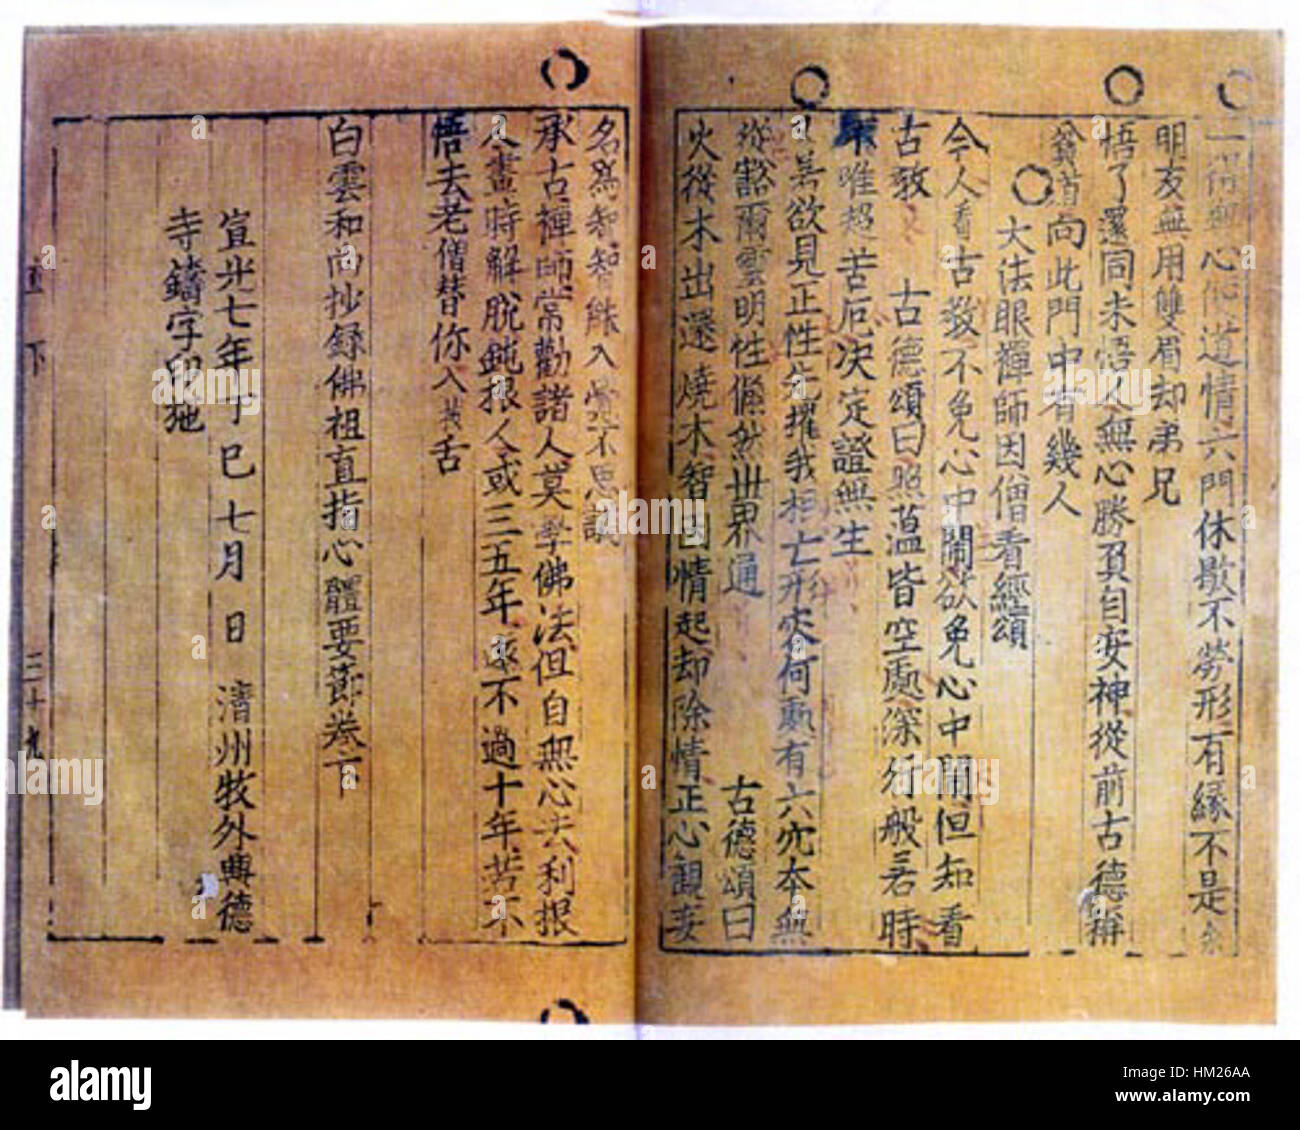 一得無心便道情六門休歇不勞形有緣不是余
明友無用雙眉却弟兄
悟了還同未悟人無心勝負自安神從前古德稱
貧道向此門中有幾人
大法眼禪師因僧看經頌
今人看古教不免心中鬧欲免心中鬧但知看
古教 古德頌曰照蘊皆空處深行般若時
唯超苦厄決定證無生
善欲見正性先摧我相亡形突何更有六穴本無
從豁爾雲明性儵然世界通 古德頌曰
火從木出還燒木智因情起却除情正心觀妄
名爲智智能入 不思議
承古禪師常勸諸人莫學佛法但自無心去利根
人晝時解脫鈍根人或三五年遠不過十年若不
悟去老僧替你入 舌
白雲和尙抄錄佛祖直指心體要節卷下
宣光七年丁巳七月 日 淸州牧外興德
寺鑄字印施
直下
三十九
alamy
Image ID: HM26AA
www.alamy.com